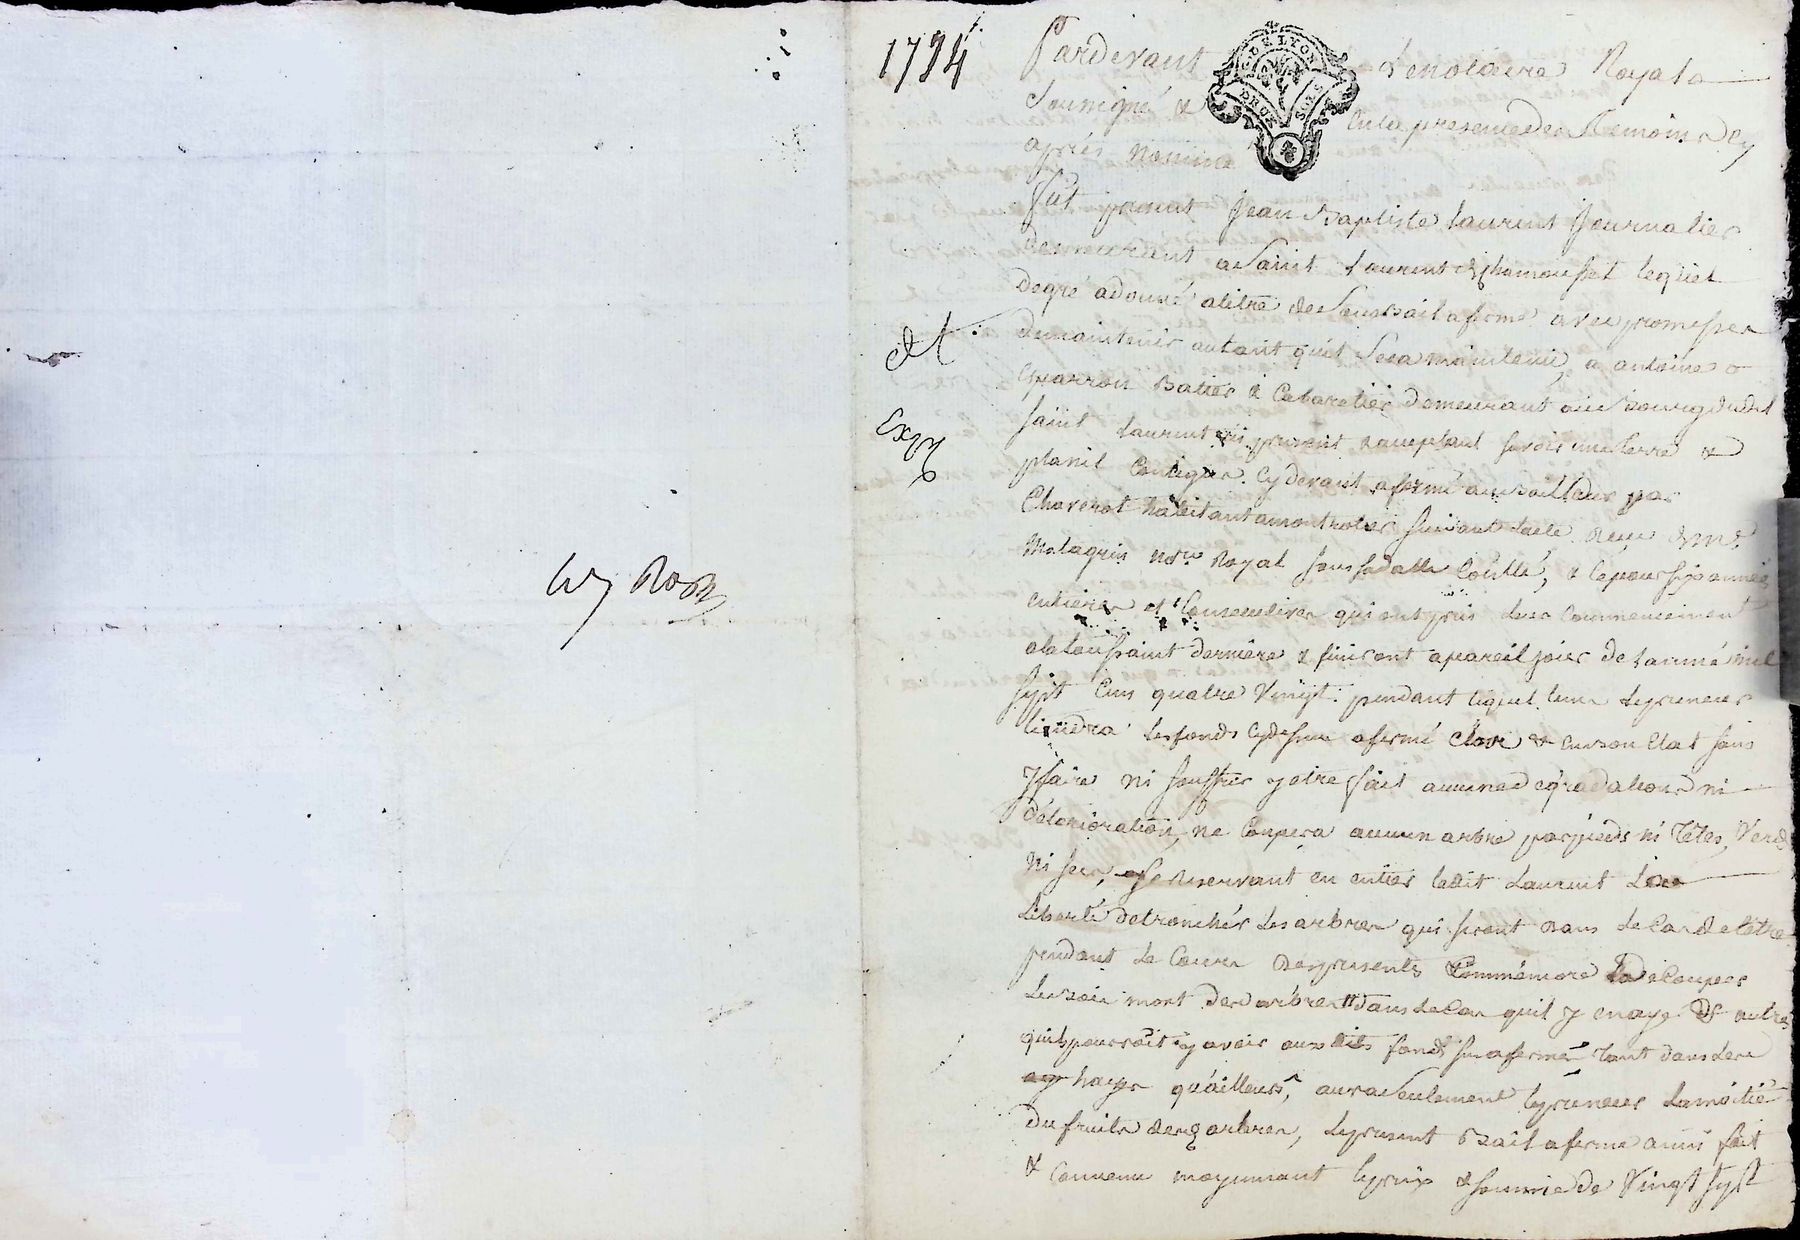 1774
Pardevant Le notaire Royal
G. DE LYON
DEUX SOLS
Sousigné & En la presence des temoins Cy
après nommé
fut present Jean Baptiste Laurent Journalier
demeurant a Saint Laurent de Chamousset lequel
de gré a donné a titre de Seur bail a ferme avec promesse
de maintenir autant qu'il Sera maintenu, a antoine
Charron batier & Cabaretier demeurant au bourg dudit
saint Laurent ici present & acceptant savoir une terre &
planil Contigus Cy devant afermé au bailleur par
Chaverot habitant a montrotier suivant l'acte Recu de Me
Malaguin nore Royal sous sa datte Coutlé, & Ce pour six années
entieres et Consecutives qui ont pris leur Commencement
a la toussaint derniere & finiront a pareil jour de l'anné mil
sept Cens quatre Vingt. pendant lequel tems Le preneur
tiendra Les fonds Cy dessus afermé Clos & en bon Etat sans
y faire ni souffrir y etre fait aucune dégradations ni
déterioration, ne Coupera aucun arbre par pieds ni Têtes, Verd
Ni sec, se Reservant en entier ledit Laurent La
Liberté de troncher Les arbres qui seront dans Le Cas de l'etre
pendant Le Cours des presentes Comme encore de Couper
Le bois mort des arbres dans Le Cas quil y en aye & autres
quil pourroit y avoir aux dits fonds sus afermé, tant dans Les
hayes qu'ailleurs, aura Seulement Le preneur La moitié
Du fruits des arbres, Le present Bail a ferme ainsi fait
& Convenu moyennant Le prix & Somme de Vingt sept